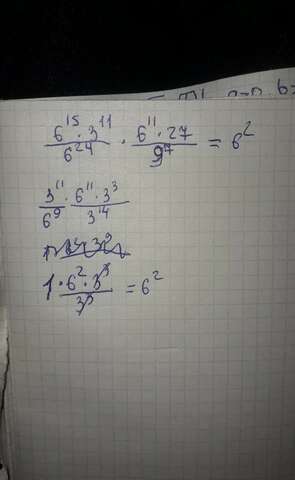 6^15 · 3^11 / 6^24 · 6^11 · 27 / 9^7 = 6^2
3^11 / 6^9 · 6^11 · 3^3 / 3^14
1 · 6^2 · 3^3 / 3^3 = 6^2